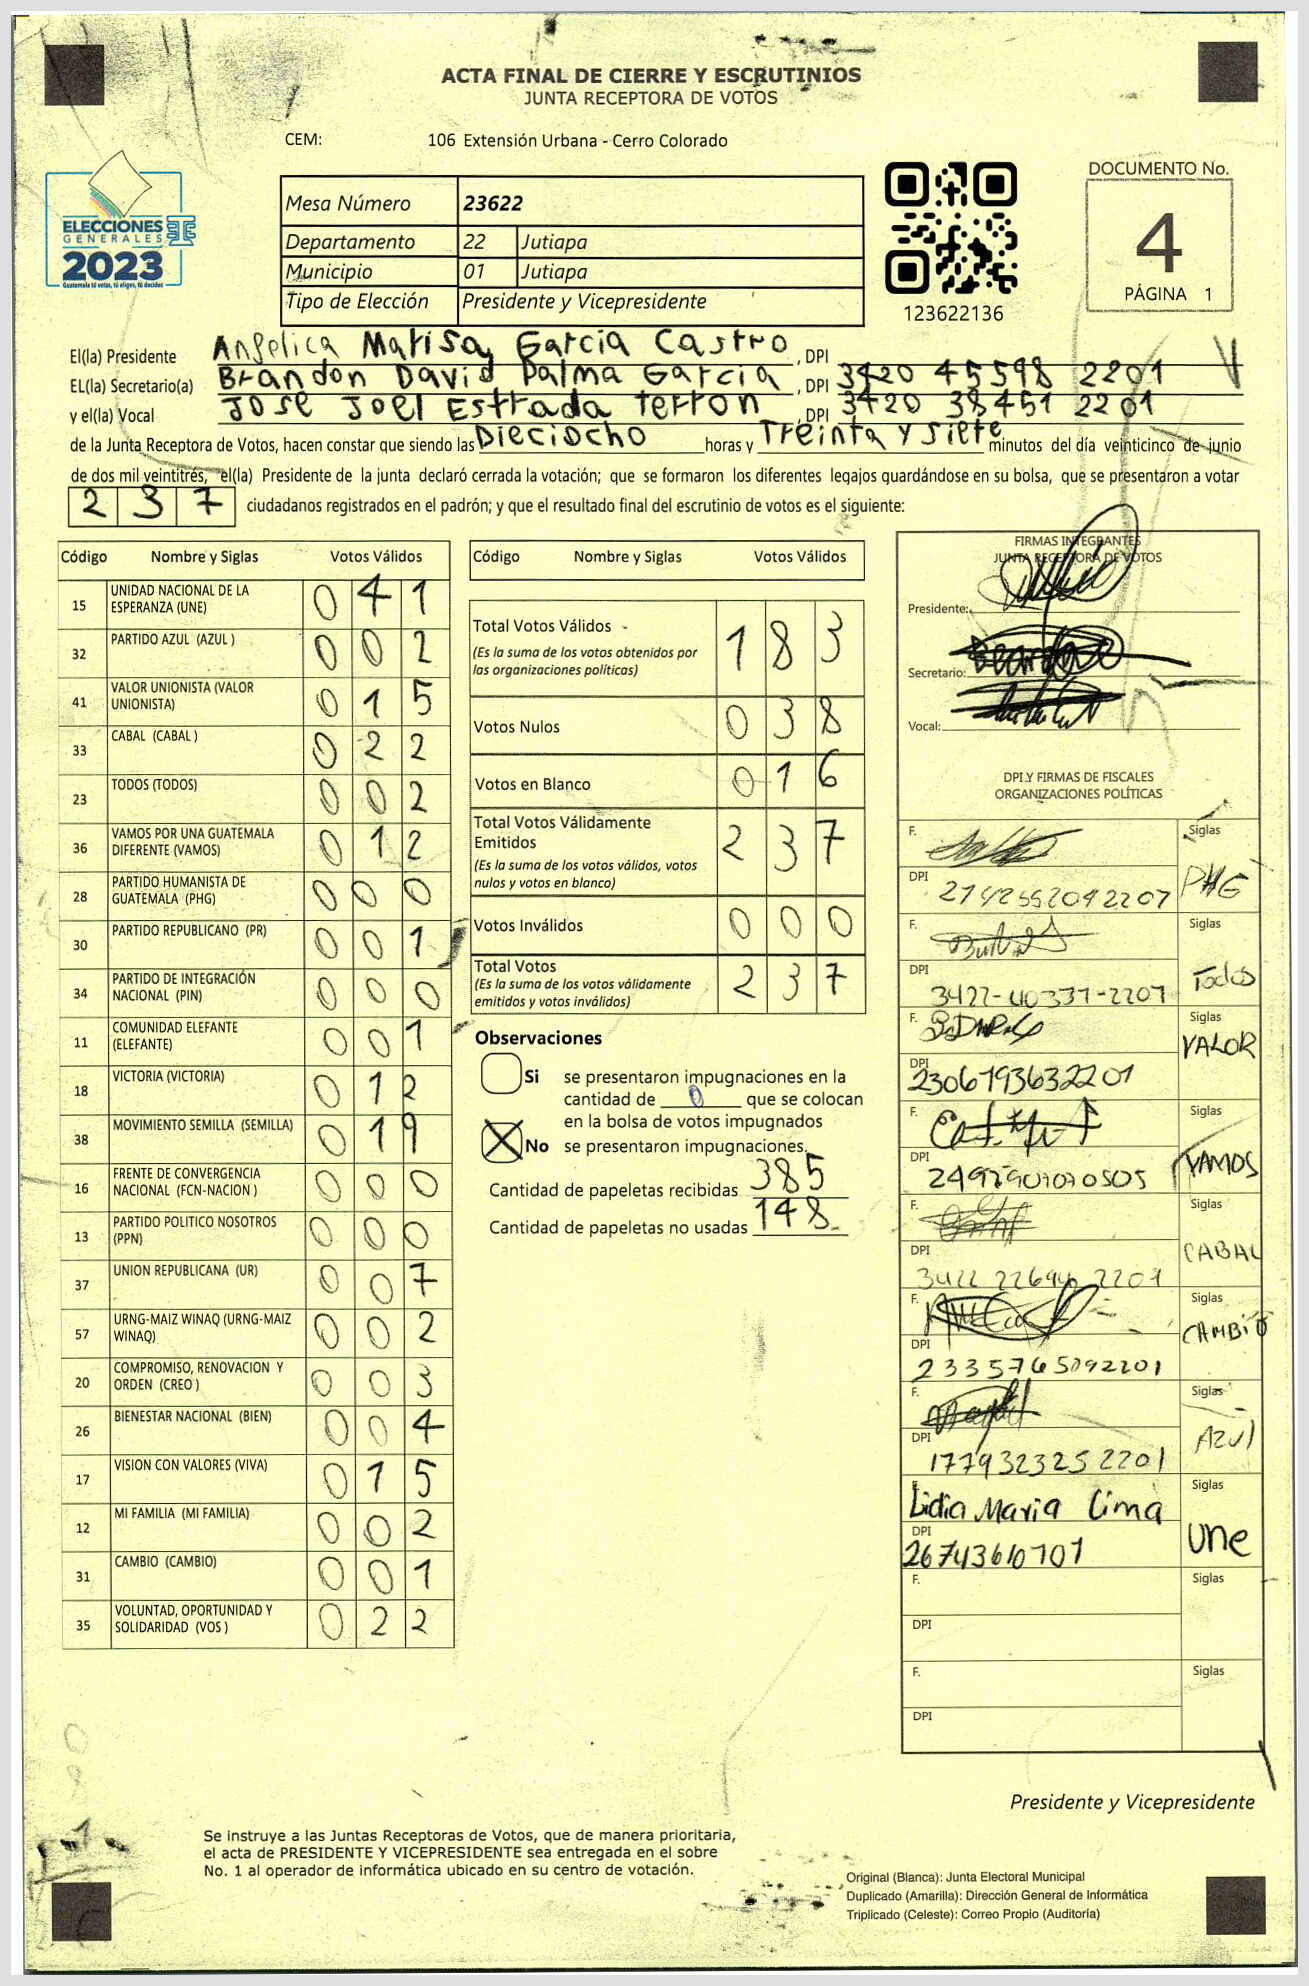 ACTA FINAL DE CIERRE Y ESCRUTINIOS
JUNTA RECEPTORA DE VOTOS
CEM: 106 Extensión Urbana - Cerro Colorado
ELECCIONES
GENERALES
2023
Guatemala tú votas, tú eliges, tú decides
Mesa Número 23622
Departamento 22 Jutiapa
Municipio 01 Jutiapa
Tipo de Elección Presidente y Vicepresidente
123622136
DOCUMENTO No.
4
PÁGINA 1
El(la) Presidente Angelica Marisa Garcia Castro , DPI
EL(la) Secretario(a) Brandon David Palma Garcia , DPI 3420 45598 2201
y el(la) Vocal Jose Joel Estrada Terron , DPI 3420 38451 2201
de la Junta Receptora de Votos, hacen constar que siendo las Dieciocho horas y Treinta y siete minutos del día veinticinco de junio
de dos mil veintitrés, el(la) Presidente de la junta declaró cerrada la votación; que se formaron los diferentes legajos guardándose en su bolsa, que se presentaron a votar
237 ciudadanos registrados en el padrón; y que el resultado final del escrutinio de votos es el siguiente:
Código Nombre y Siglas Votos Válidos
15 UNIDAD NACIONAL DE LA ESPERANZA (UNE) 041
32 PARTIDO AZUL (AZUL ) 002
41 VALOR UNIONISTA (VALOR UNIONISTA) 015
33 CABAL (CABAL ) 022
23 TODOS (TODOS) 002
36 VAMOS POR UNA GUATEMALA DIFERENTE (VAMOS) 012
28 PARTIDO HUMANISTA DE GUATEMALA (PHG) 000
30 PARTIDO REPUBLICANO (PR) 001
34 PARTIDO DE INTEGRACIÓN NACIONAL (PIN) 000
11 COMUNIDAD ELEFANTE (ELEFANTE) 001
18 VICTORIA (VICTORIA) 012
38 MOVIMIENTO SEMILLA (SEMILLA) 019
16 FRENTE DE CONVERGENCIA NACIONAL (FCN-NACION ) 000
13 PARTIDO POLITICO NOSOTROS (PPN) 000
37 UNION REPUBLICANA (UR) 007
57 URNG-MAIZ WINAQ (URNG-MAIZ WINAQ) 002
20 COMPROMISO, RENOVACION Y ORDEN (CREO ) 003
26 BIENESTAR NACIONAL (BIEN) 004
17 VISION CON VALORES (VIVA) 015
12 MI FAMILIA (MI FAMILIA) 002
31 CAMBIO (CAMBIO) 001
35 VOLUNTAD, OPORTUNIDAD Y SOLIDARIDAD (VOS ) 022
Código Nombre y Siglas Votos Válidos
Total Votos Válidos 183
(Es la suma de los votos obtenidos por
las organizaciones políticas)
Votos Nulos 038
Votos en Blanco 016
Total Votos Válidamente
Emitidos 237
(Es la suma de los votos válidos, votos
nulos y votos en blanco)
Votos Inválidos 000
Total Votos 237
(Es la suma de los votos válidamente
emitidos y votos inválidos)
Observaciones
Si se presentaron impugnaciones en la
cantidad de 0 que se colocan
en la bolsa de votos impugnados
X No se presentaron impugnaciones.
Cantidad de papeletas recibidas 385
Cantidad de papeletas no usadas 148
FIRMAS INTEGRANTES
JUNTA RECEPTORA DE VOTOS
Presidente:
Secretario:
Vocal:
DPI Y FIRMAS DE FISCALES
ORGANIZACIONES POLÍTICAS
F. Siglas
DPI 2742552092207 PHG
F. Siglas
DPI 3422-40337-2207 Todos
F. Siglas
DPI 2306193632201 VALOR
F. Siglas
DPI VAMOS
F. Siglas
DPI CABAL
F. Siglas
DPI 2335765092201 CAMBIO
F. Siglas
DPI 1779323252201 AZUL
Lidia Maria Lima Siglas
DPI une
F. Siglas
DPI
F. Siglas
DPI
Presidente y Vicepresidente
Se instruye a las Juntas Receptoras de Votos, que de manera prioritaria,
el acta de PRESIDENTE Y VICEPRESIDENTE sea entregada en el sobre
No. 1 al operador de informática ubicado en su centro de votación.
Original (Blanca): Junta Electoral Municipal
Duplicado (Amarilla): Dirección General de Informática
Triplicado (Celeste): Correo Propio (Auditoría)